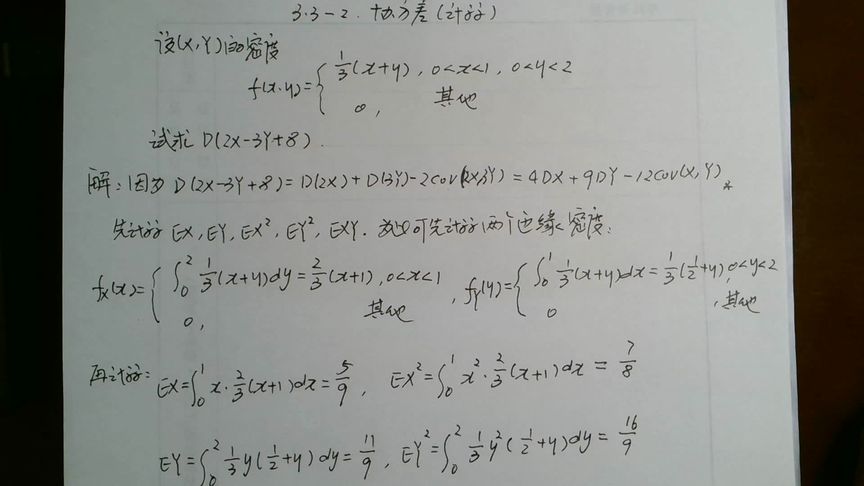 3.3-2. 协方差(计算)
设(X,Y)的密度
f(x.y)={ 1/3(x+y), 0<x<1, 0<y<2
0, 其他
试求 D(2X-3Y+8).
解:因为 D(2X-3Y+8)=D(2X)+D(3Y)-2cov(2X,3Y)=4DX+9DY-12cov(X,Y)。
先计算 EX, EY, EX², EY², EXY. 故可先计算两个边缘密度:
fx(x)={ ∫₀² 1/3(x+y)dy=2/3(x+1), 0<x<1 , fY(y)={ ∫₀¹ 1/3(x+y)dx=1/3(1/2+y), 0<y<2
0, 其他 0 , 其他
再计算: EX=∫₀¹ x·2/3(x+1)dx=5/9, EX²=∫₀¹ x²·2/3(x+1)dx=7/8
EY=∫₀² 1/3y(1/2+y)dy=11/9, EY²=∫₀² 1/3y²(1/2+y)dy=16/9